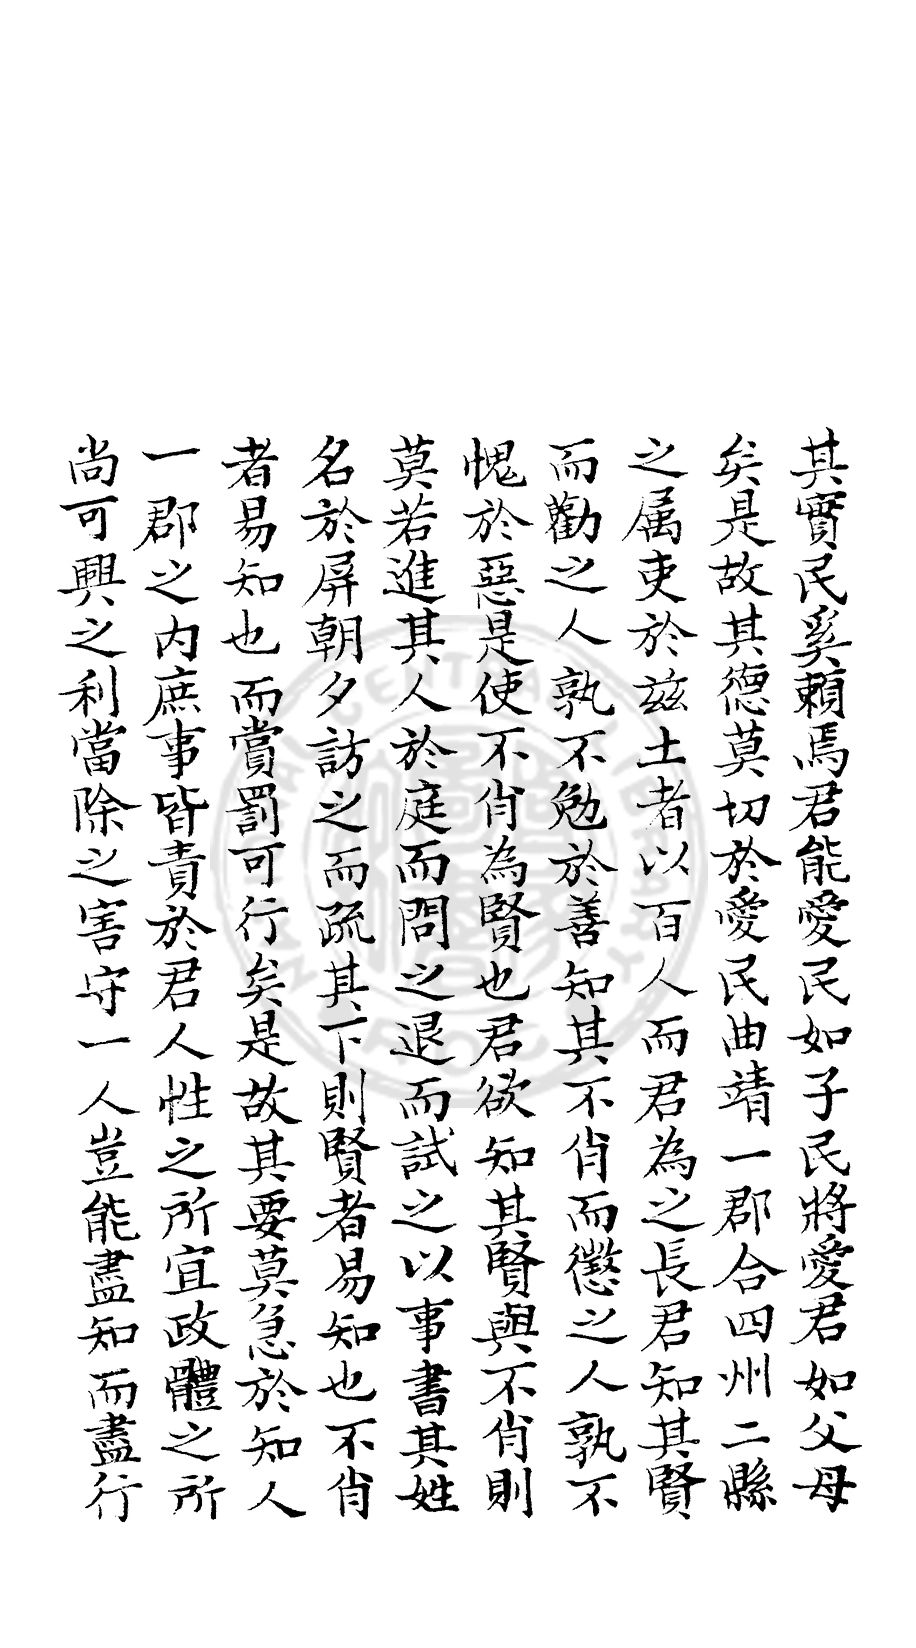 其實民奚賴焉君能愛民如子民將愛君如父母
矣是故其德莫切於愛民曲靖一郡合四州二縣
之属吏於兹土者以百人而君為之長君知其賢
而勸之人孰不勉於善知其不肖而懲之人孰不
愧於惡是使不肖為賢也君欲知其賢與不肖則
莫若進其人於庭而問之退而試之以事書其姓
名於屏朝夕訪之而疏其下則賢者易知也不肖
者易知也而賞罰可行矣是故其要莫急於知人
一郡之内庶事皆責於君人性之所宜政體之所
尚可興之利當除之害守一人豈能盡知而盡行